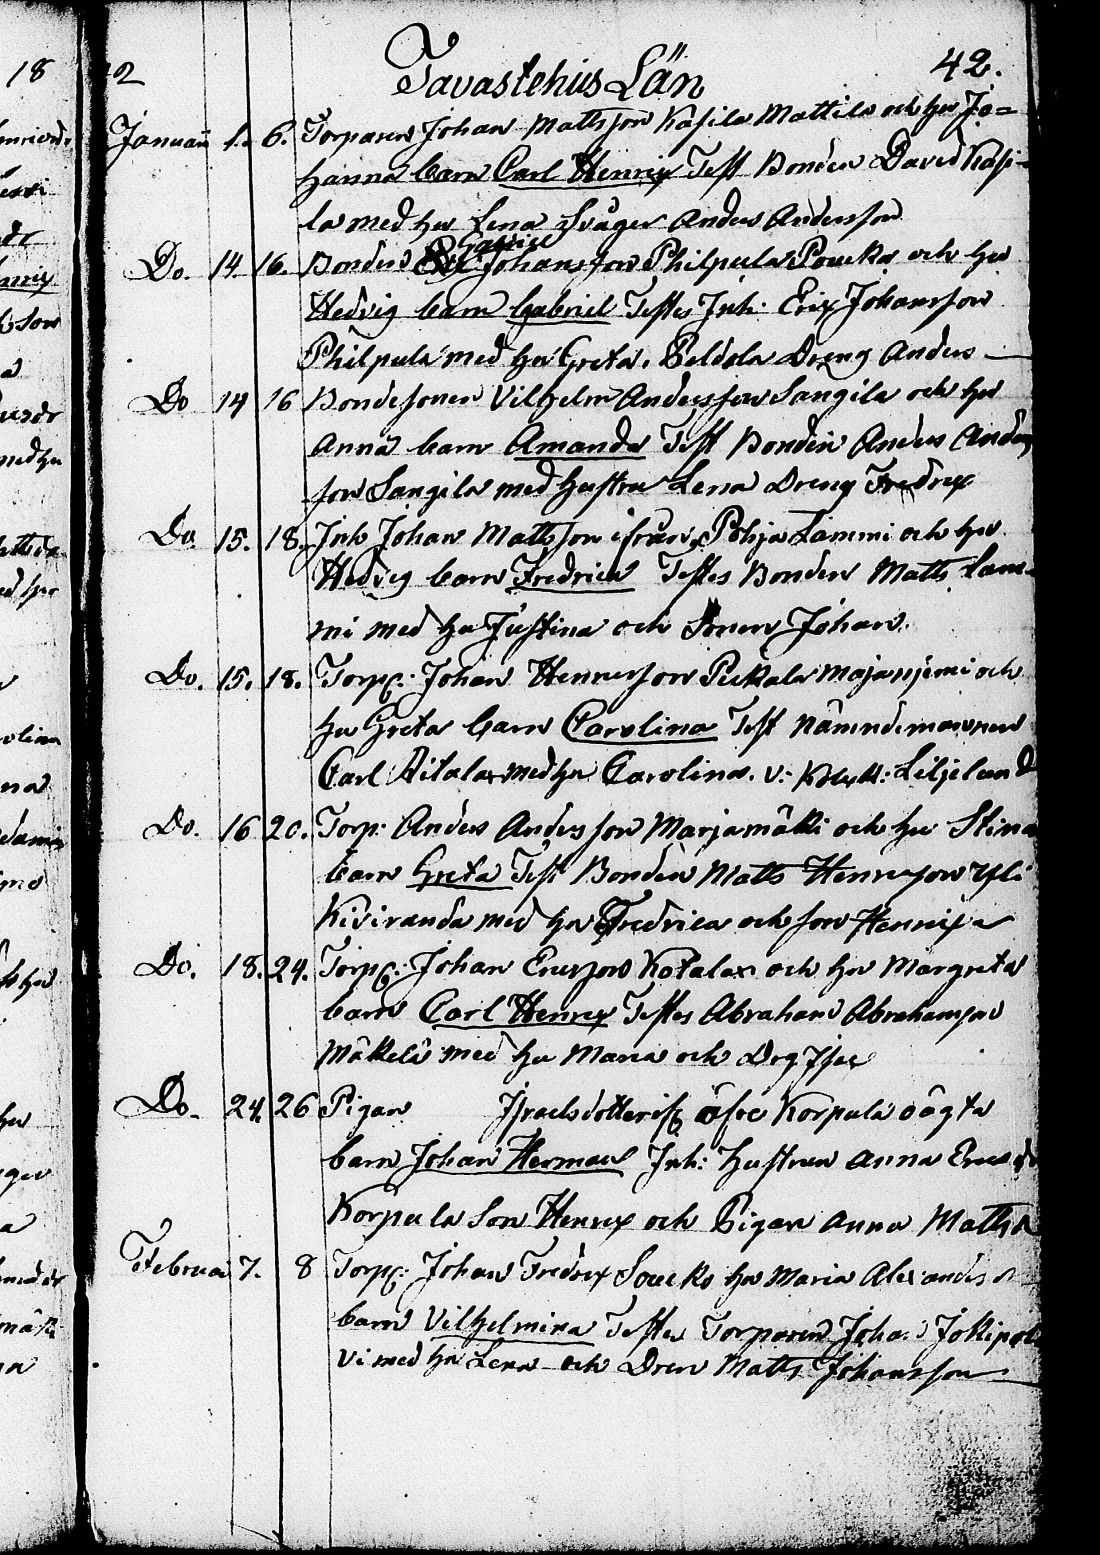 Tavastehus Län 42.
Januari 1. 6. Torparen Johan Mattsson Kåsila Mattila och hu Jo=
hanna barn Carl Henrix Test Bonden David Kåsi-
la med hu Lena Svåger Anders Andersson
Do. 14. 16. Bonden Gabriel Johansson Philpula Poucka och hu
Hedvig barn Gabriel Testes Inh: Erix Johansson
Philpula med hu Greta. Peldola Dreng Anders
Do 14 16 Bondesonen Vilhelm Andersson Sangila och hu
Anna barn Amanda Test Bonden Anders Anders
son Sangila med hustru Lena Dreng Fredrex
Do. 15. 18. Inh Johan Mattsson ifrån Pohja Lammi och hu
Hedvig barn Fredrica Testes Bonden Matts Lam-
mi med hu Justina och Sonen Johan.
Do. 15. 18. Torp: Johan Henricsson Peekala Majanjemi och
hu Greta barn Carolina Test Nämndemannen
Carl Aitala med hu Carolina. v: Liljelund
Do. 16 20. Torp: Anders Andersson Marjamäki och hu Stina
barn Greta Test Bonden Matts Henricsson Yli
Kiviranda med hu Fredrica och son Henrix
Do. 18. 24. Torp: Johan Ericsson Kotala och hu Margreta
barn Carl Henrex Testes Abraham Abrahamsson
Mäkelä med hu Maria och Drg Isac
Do. 24. 26 Pigan Israelsdotter if öfre Korpula oägta
barn Johan Herman Inh: hustrun Anna Ericsdr
Korpula Son Henrex och Pigan Anna Mattsd
Februari 7. 8 Torp: Johan Fredrex Soucko hu Maria Alexandersdr
barn Vilhelmina Testes Torparen Johan Jokipol
vi med hu Lena och Dren Matts Johansson